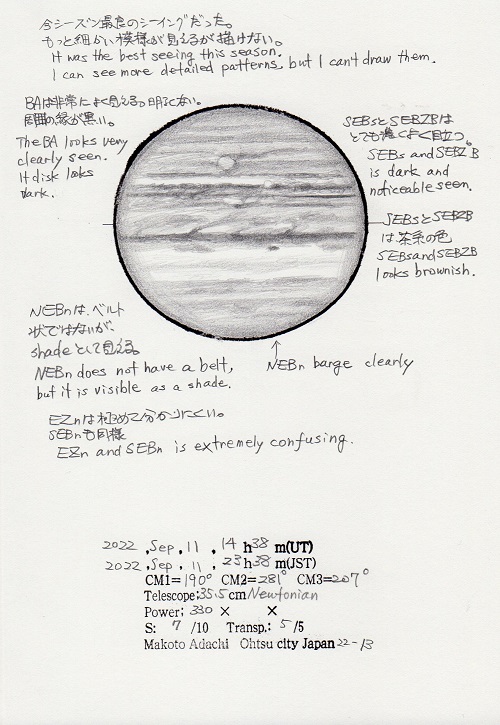 今シーズン最良のシーイングだった。
もっと細かい模様が見えるが描けない。
It was the best seeing this season.
I can see more detailed patterns, but I can't draw them.
BAは非常によく見える。明るくない。
周囲の縁が黒い。
The BA looks very
clearly seen.
It disk looks
dark.
SEBsとSEBZBは
とても濃くよく目立つ。
SEBs and SEBZB
is dark and
noticeable seen.
SEBsとSEBZB
は茶系の色
SEBs and SEBZB
looks brownish.
NEBnは、ベルト
状ではないが、
shadeとして見える。
NEBn does not have a belt,
but it is visible as a shade.
NEBn barge clearly
EZnは極めて分かりにくい。
SEBnも同様
EZn and SEBn is extremely confusing.
2022 , Sep , 11 , 14 h 38 m(UT)
2022 , Sep , 11 , 23 h 38 m(JST)
CM1= 190° CM2= 281° CM3= 207°
Telescope; 35.5 cm Newtonian
Power; 330 × ×
S: 7 /10 Transp.: 5 /5
Makoto Adachi Ohtsu city Japan 22-13